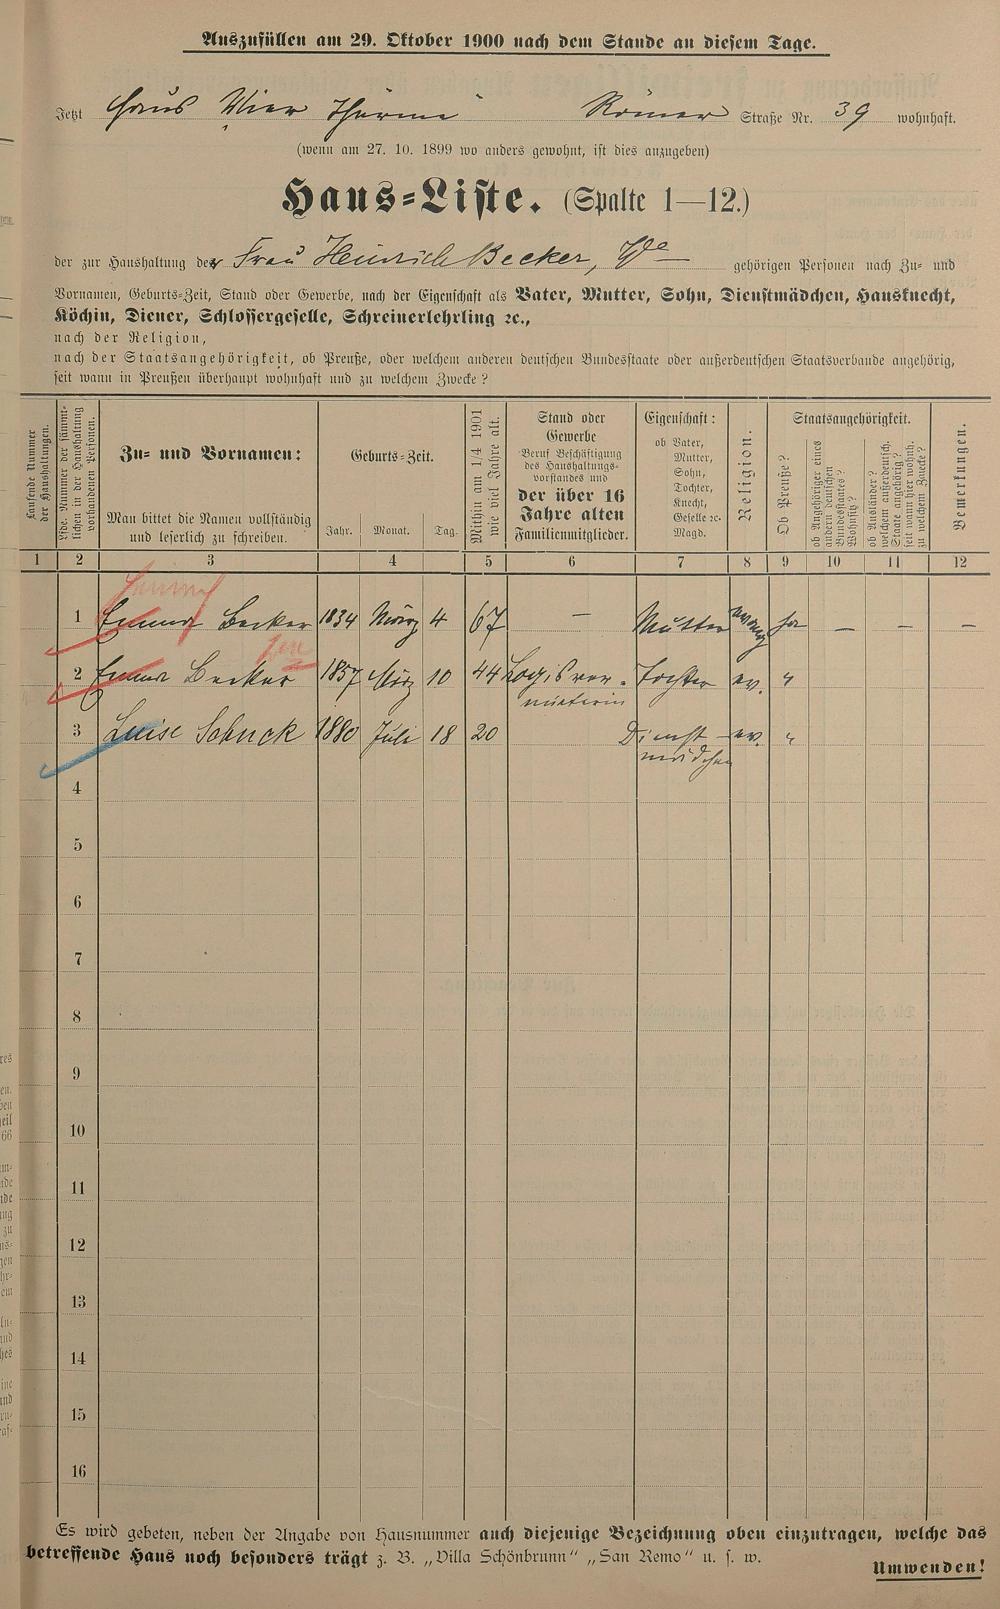 Auszufüllen am 29. Oktober 1900 nach dem Stande an diesem Tage.
Jetzt Haus Vier Thürme Römer Straße Nr. 39 wohnhaft.
(wenn am 27. 10. 1899 wo anders gewohnt, ist dies anzugeben)
Haus-Liste. (Spalte 1—12.)
der zur Haushaltung der Frau Heinrich Becker, Wwe gehörigen Personen nach Zu- und
Vornamen, Geburts-Zeit, Stand oder Gewerbe, nach der Eigenschaft als Vater, Mutter, Sohn, Dienstmädchen, Hausknecht,
Köchin, Diener, Schlossergeselle, Schreinerlehrling ꝛc.,
nach der Religion,
nach der Staatsangehörigkeit, ob Preuße, oder welchem anderen deutschen Bundesstaate oder außerdeutschen Staatsverbande angehörig,
seit wann in Preußen überhaupt wohnhaft und zu welchem Zwecke?
Laufende Nummer
der Haushaltungen.
Lfde. Nummer der sämmt-
lichen in der Haushaltung
vorhandenen Personen.
Zu- und Vornamen:
Man bittet die Namen vollständig
und leserlich zu schreiben.
Geburts-Zeit.
Jahr. Monat. Tag.
Mithin am 1/4 1901
wie viel Jahre alt.
Stand oder
Gewerbe
Beruf Beschäftigung
des Haushaltungs-
vorstandes und
der über 16
Jahre alten
Familienmitglieder.
Eigenschaft:
ob Vater,
Mutter,
Sohn,
Tochter,
Knecht,
Geselle ꝛc.
Magd.
Religion.
Staatsangehörigkeit.
Ob Preuße?
ob Angehöriger eines
andern deutschen
Bundesstaates?
Wohnsitz?
ob Ausländer?
welchem außerdeutsch.
Staate angehörig?
seit wann hier wohnh.
zu welchem Zwecke?
Bemerkungen.
1 2 3 4 5 6 7 8 9 10 11 12
1 Emma Becker 1834 März 4 67 — Mutter evang ja — — —
jun
2 Emma Becker 1857 März 10 44 Logisver- Tochter ev. "
mieterin
3 Luise Schuck 1880 Juli 18 20 Dienst- ev. "
mädchen
4
5
6
7
8
9
10
11
12
13
14
15
16
Es wird gebeten, neben der Angabe von Hausnummer auch diejenige Bezeichnung oben einzutragen, welche das
betreffende Haus noch besonders trägt z. B. „Villa Schönbrunn“ „San Remo“ u. s. w.
Umwenden!